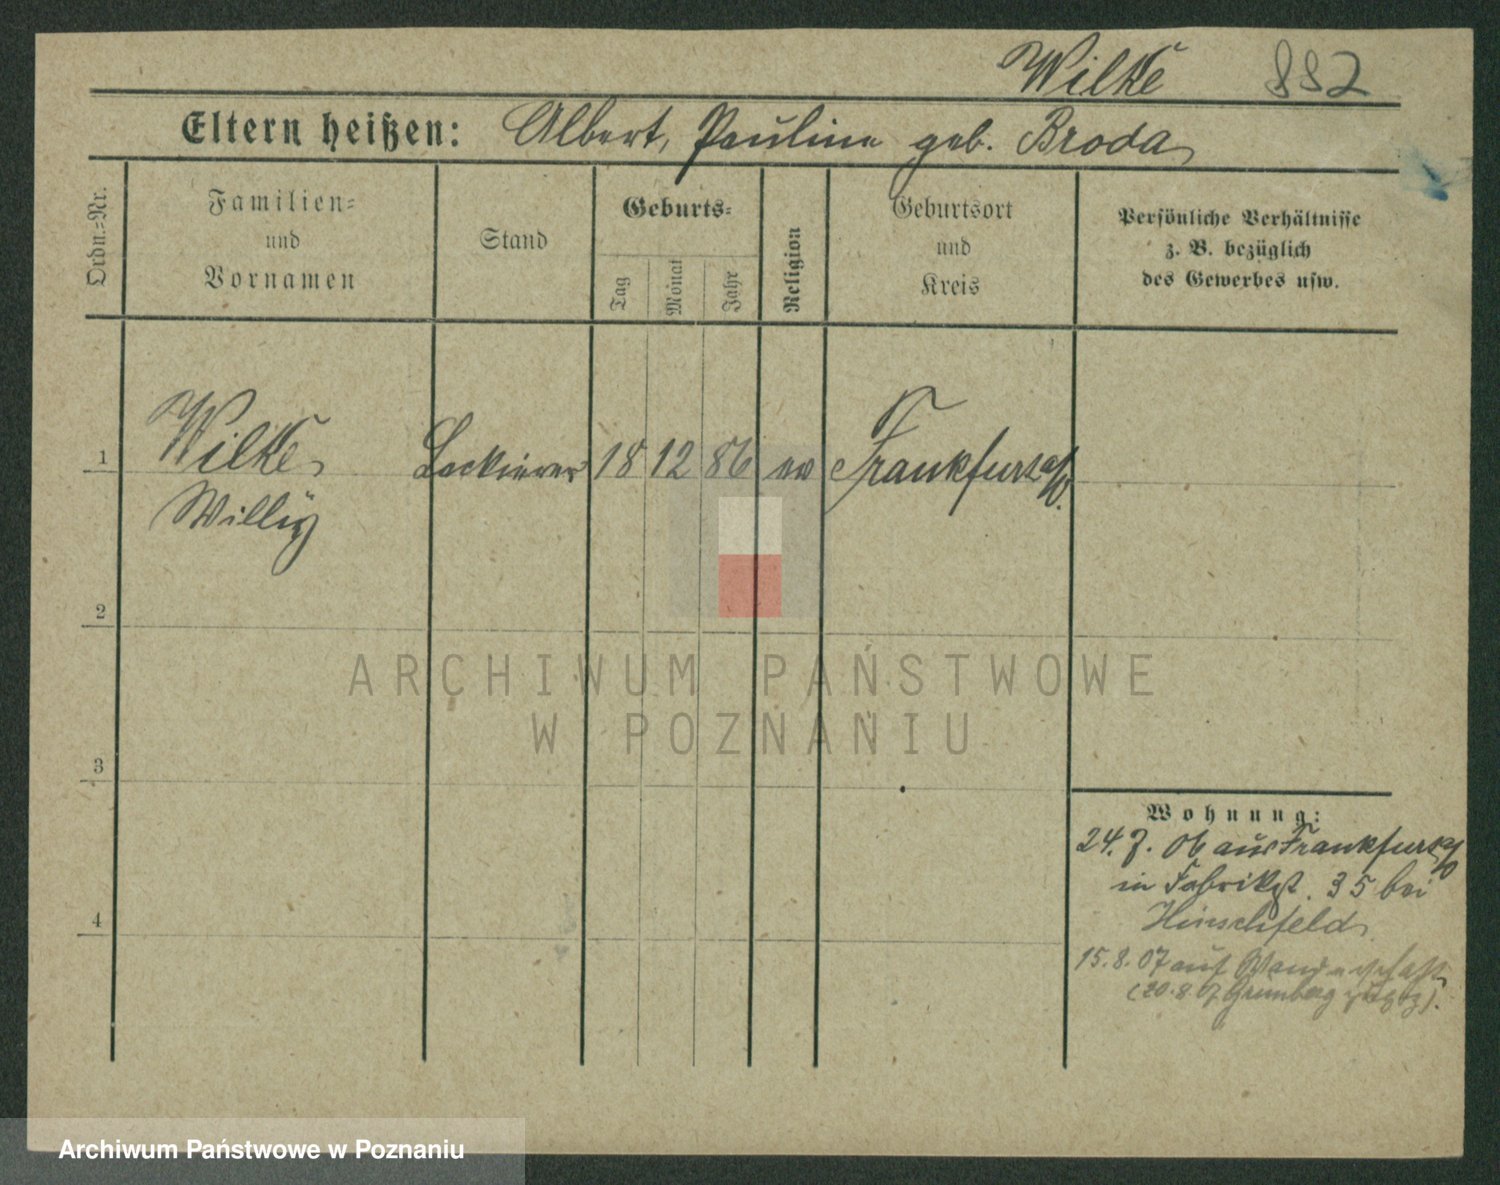 Wilke 882
Eltern heißen: Albert, Pauline geb. Broda
Ordn.=Nr.
Familien=
und
Vornamen
Stand
Geburts=
Tag
Monat
Jahr
Religion
Geburtsort
und
Kreis
Persönliche Verhältnisse
z. B. bezüglich
des Gewerbes usw.
1 Wilke, Lackierer 18 12 86 ev Frankfurt a/O.
Willy
2
ARCHIWUM PAŃSTWOWE
W POZNANIU
3
Wohnung:
24. 7. 06 aus Frankfurt a/O
in Fabrikst. 35 bei
Hirschfeld
4
15. 8. 07 auf Wanderschaft
(20. 8. 07 Grünberg
Archiwum Państwowe w Poznaniu